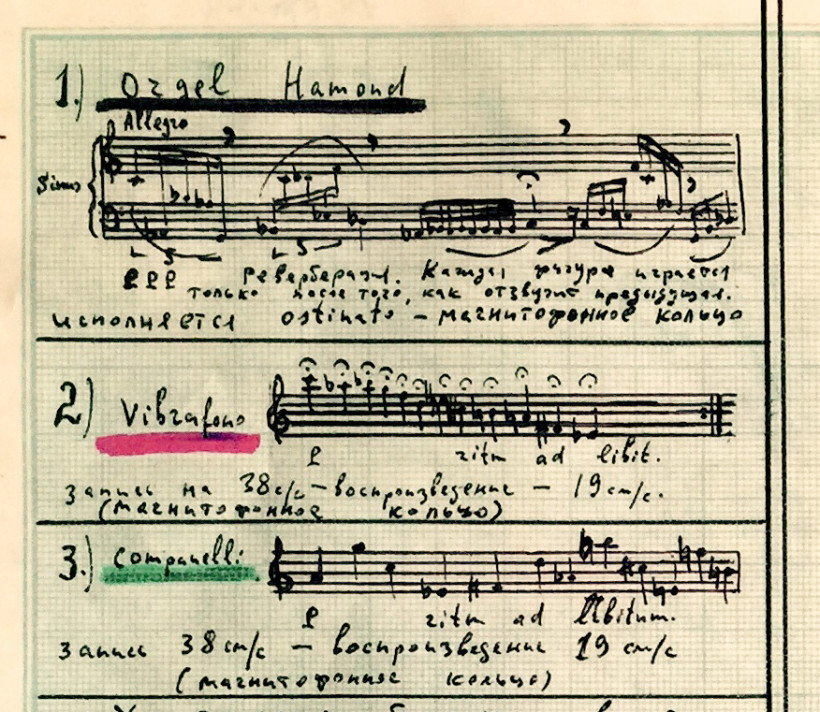 1.) Orgel Hamond
Allegro
Sinus
5 5
ppp Реверберац. Каждая фигура играется
только после того, как отзвучит предыдущая.
исполняется ostinato – магнитофонное кольцо
2) Vibrafono
p ritm ad libit.
запись на 38 с/с – воспроизведение – 19 cm/c.
(магнитофонное кольцо)
3.) Companelli
p ritm ad libitum.
запись 38 cm/c – воспроизведение 19 cm/c
(магнитофонное кольцо)